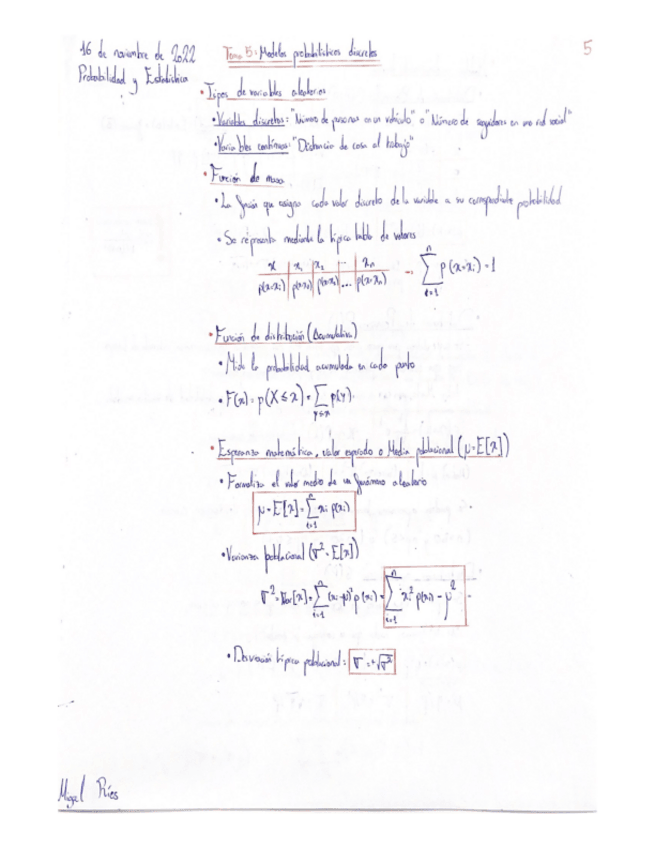 16 de noviembre de 2022
Probabilidad y Estadística
Tema 5: Modelos probabilísticos discretos
5
• Tipos de variables aleatorias
• Variables discretas: "Número de personas en un vehículo" o "Número de seguidores en una red social"
• Variables continuas: "Distancia de casa al trabajo"
• Función de masa
• La función que asigna cada valor discreto de la variable a su correspondiente probabilidad
• Se representa mediante la típica tabla de valores
x | x₁ | x₂ | ... | xₙ
p(x=xᵢ) | p(x=x₁) | p(x=x₂) | ... | p(x=xₙ) → ∑ⁿᵢ₌₁ p(x=xᵢ) = 1
• Función de distribución (Acumulativa)
• Mide la probabilidad acumulada en cada punto
• F(x) = p(X ≤ x) = ∑ y≤x p(y)
• Esperanza matemática, valor esperado o Media poblacional (μ=E[x])
• Formaliza el valor medio de un fenómeno aleatorio
μ = E[x] = ∑ⁿᵢ₌₁ xᵢ p(xᵢ)
• Varianza poblacional (σ² = E[x])
σ² = Var[x] = ∑ⁿᵢ₌₁ (xᵢ-μ)² p(xᵢ) = ∑ⁿᵢ₌₁ xᵢ² p(xᵢ) - μ²
• Desviación típica poblacional: σ = +√σ²
Miguel Ríos